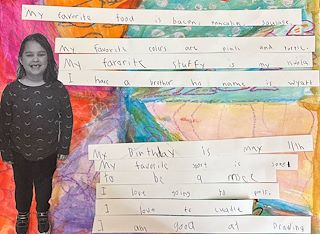 My favorite food is bacon,
My favorite colors are pink and
My favorite stuffy is my
I have a brother his name is Wyatt
My Birthday is may 11th
My favorite is
to be a
I love going to
I love to cuddle
I am good at